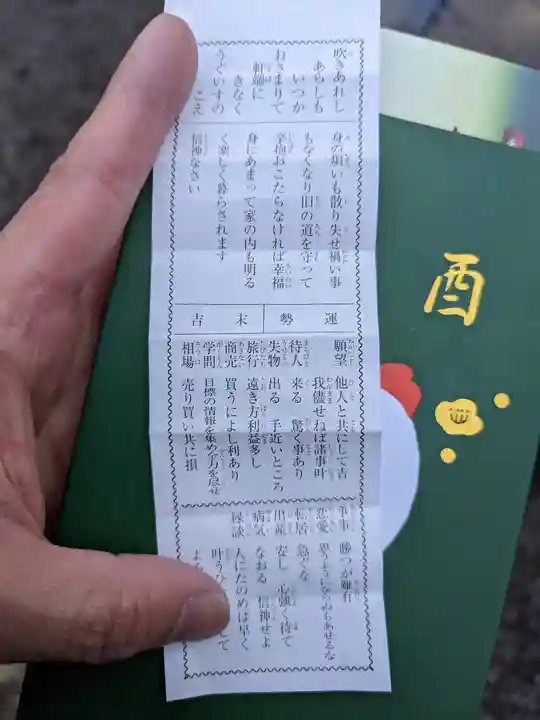 吹きあれし
あらしも
いつか
おさまりて
軒端に
きなく
うぐいすの
こえ
身の煩いも散り失せ禍い事
もなくなり旧の道を守って
辛抱おこたらなければ幸福
身にあまって家の内も明る
く楽しく暮らされます
信神なさい
運勢
末吉
願望 他人と共にして吉
我儘せねば諸事叶
待人 来る 驚く事あり
失物 出る 手近いところ
旅行 遠き方利益多し
商売 買うによし利あり
学問 目標の情報を集め全力を尽せ
相場 売り買い共に損
争事 勝つが難有
恋愛 思うようにならぬもあせるな
転居 急ぐな
出産 安し 心強く待て
病気 なおる 信神せよ
縁談 人にたのめは早く
叶うひ
して
よ
酉